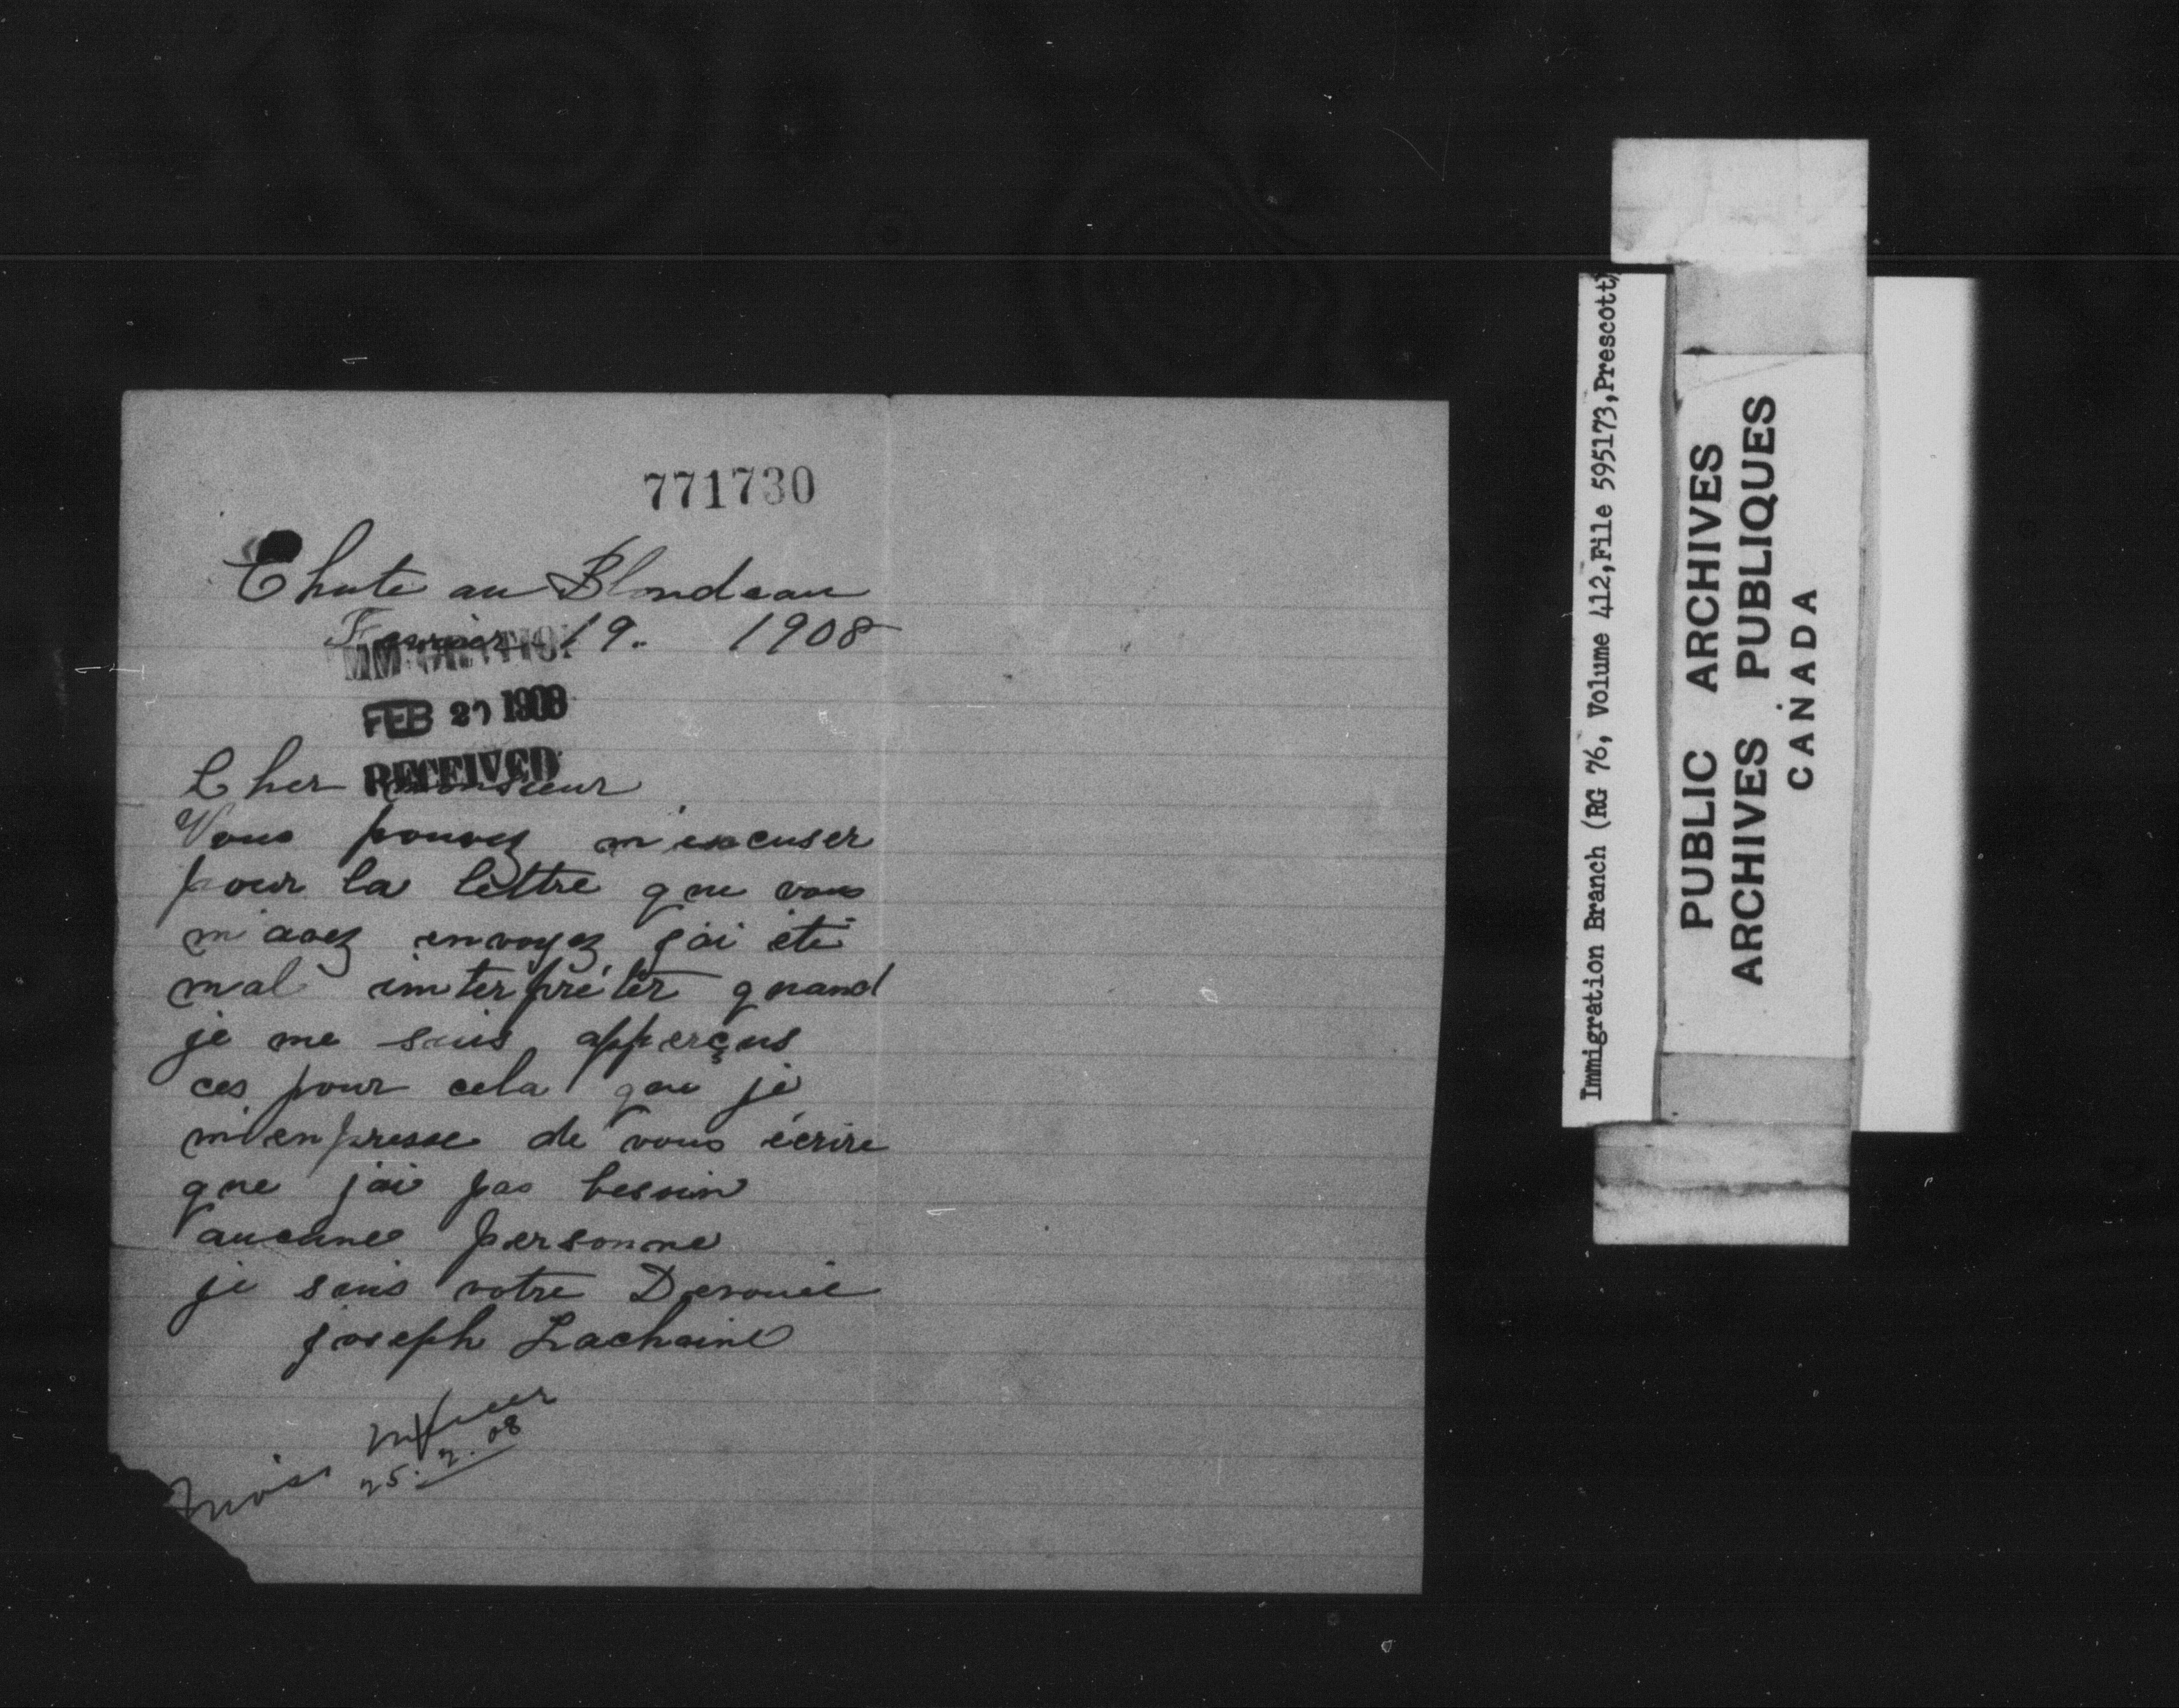 771730
Chute au Blondeau
Fevrier 19. 1908
IMMIGRATION
FEB 20 1908
RECEIVED
Cher Monsieur
Vous pouvez m'excuser
pour la lettre que vous
m'avez envoyez j'ai été
mal imterpréter quand
je me suis apperçus
ces pour cela que je
m'enpresse de vous écrire
que j'ai pas besoin
aucune personne
je suis votre Devouée
joseph Lachaine
25.2.08
Immigration Branch (RG 76, Volume 412,File 595173,Prescott)
PUBLIC ARCHIVES
ARCHIVES PUBLIQUES
CANADA